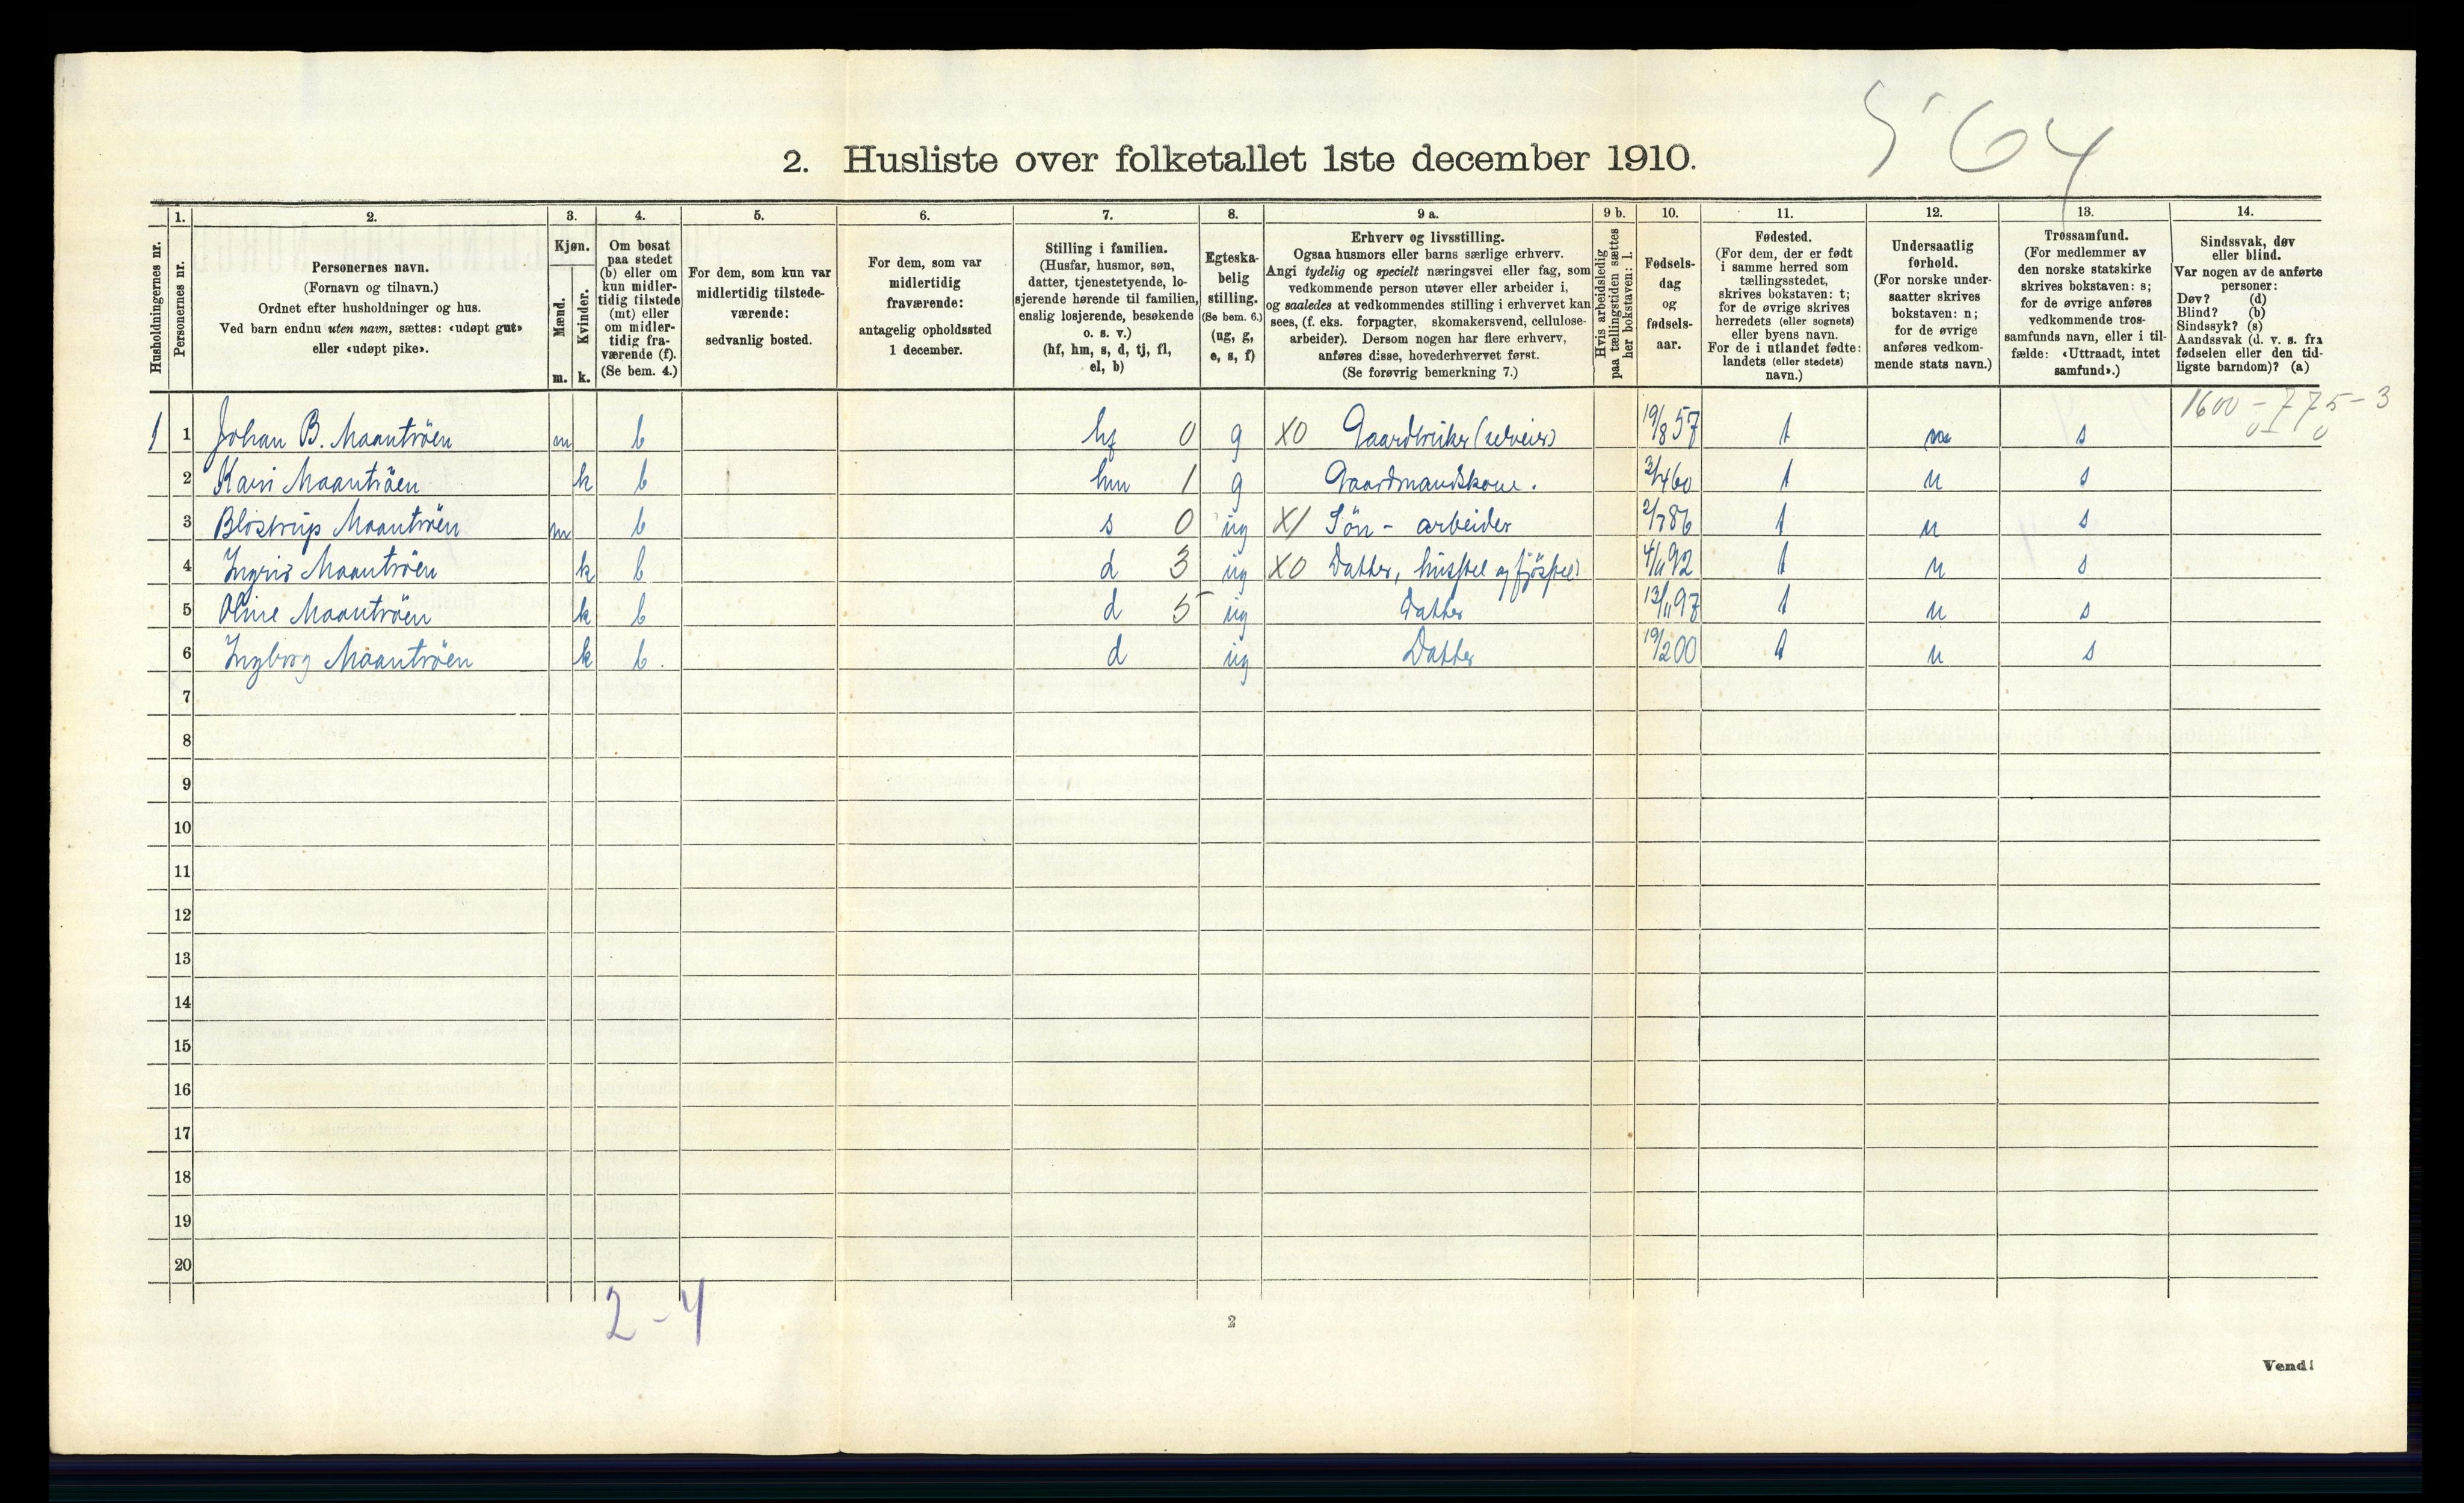 564
2. Husliste over folketallet 1ste december 1910.
Husholdningernes nr.
1. Personernes nr.
2. Personernes navn.
(Fornavn og tilnavn.)
Ordnet efter husholdninger og hus.
Ved barn endnu uten navn, sættes: «udøpt gut»
eller «udøpt pike».
3. Kjøn.
Mænd. m.
Kvinder. k.
4. Om bosat
paa stedet
(b) eller om
kun midler-
tidig tilstede
(mt) eller
om midler-
tidig fra-
værende (f).
(Se bem. 4.)
5. For dem, som kun var
midlertidig tilstede-
værende:
sedvanlig bosted.
6. For dem, som var
midlertidig
fraværende:
antagelig opholdssted
1 december.
7. Stilling i familien.
(Husfar, husmor, søn,
datter, tjenestetyende, lo-
sjerende hørende til familien,
enslig losjerende, besøkende
o. s. v.)
(hf, hm, s, d, tj, fl,
el, b)
8. Egteska-
belig
stilling.
(Se bem. 6.)
(ug, g,
e, s, f)
9 a. Erhverv og livsstilling.
Ogsaa husmors eller barns særlige erhverv.
Angi tydelig og specielt næringsvei eller fag, som
vedkommende person utøver eller arbeider i,
og saaledes at vedkommendes stilling i erhvervet kan
sees, (f. eks. forpagter, skomakersvend, cellulose-
arbeider). Dersom nogen har flere erhverv,
anføres disse, hovederhvervet først.
(Se forøvrig bemerkning 7.)
9 b. Hvis arbeidsledig
paa tællingstiden sættes
her bokstaven: l.
10. Fødsels-
dag
og
fødsels-
aar.
11. Fødested.
(For dem, der er født
i samme herred som
tællingsstedet,
skrives bokstaven: t;
for de øvrige skrives
herredets (eller sognets)
eller byens navn.
For de i utlandet fødte:
landets (eller stedets)
navn.)
12. Undersaatlig
forhold.
(For norske under-
saatter skrives
bokstaven: n;
for de øvrige
anføres vedkom-
mende stats navn.)
13. Trossamfund.
(For medlemmer av
den norske statskirke
skrives bokstaven: s;
for de øvrige anføres
vedkommende tros-
samfunds navn, eller i til-
fælde: «Uttraadt, intet
samfund».)
14. Sindssvak, døv
eller blind.
Var nogen av de anførte
personer:
Døv? (d)
Blind? (b)
Sindssyk? (s)
Aandssvak (d. v. s. fra
fødselen eller den tid-
ligste barndom)? (a)
1600 - 775 - 3
1 1 Johan B. Maantröen m b hf 0 g X0 Gaardbruker (selveier) 19/8 57 t s
2 Kari Maantröen k b hm 1 g Gaardmandskone. 3/4 60 t n s
3 Blostrup Maantröen m b s 0 ug X1 Sön - arbeider 2/7 86 t n s
4 Ingrid Maantröen k b d 3 ug X0 Datter, husstel og fjösstel 4/11 92 t n s
5 Oline Maantröen k b d 5 ug Datter 13/11 97 t n s
6 Ingborg Maantröen k b d ug Datter 19/2 00 t n s
7
8
9
10
11
12
13
14
15
16
17
18
19
20
2 - 4
2
Vend!